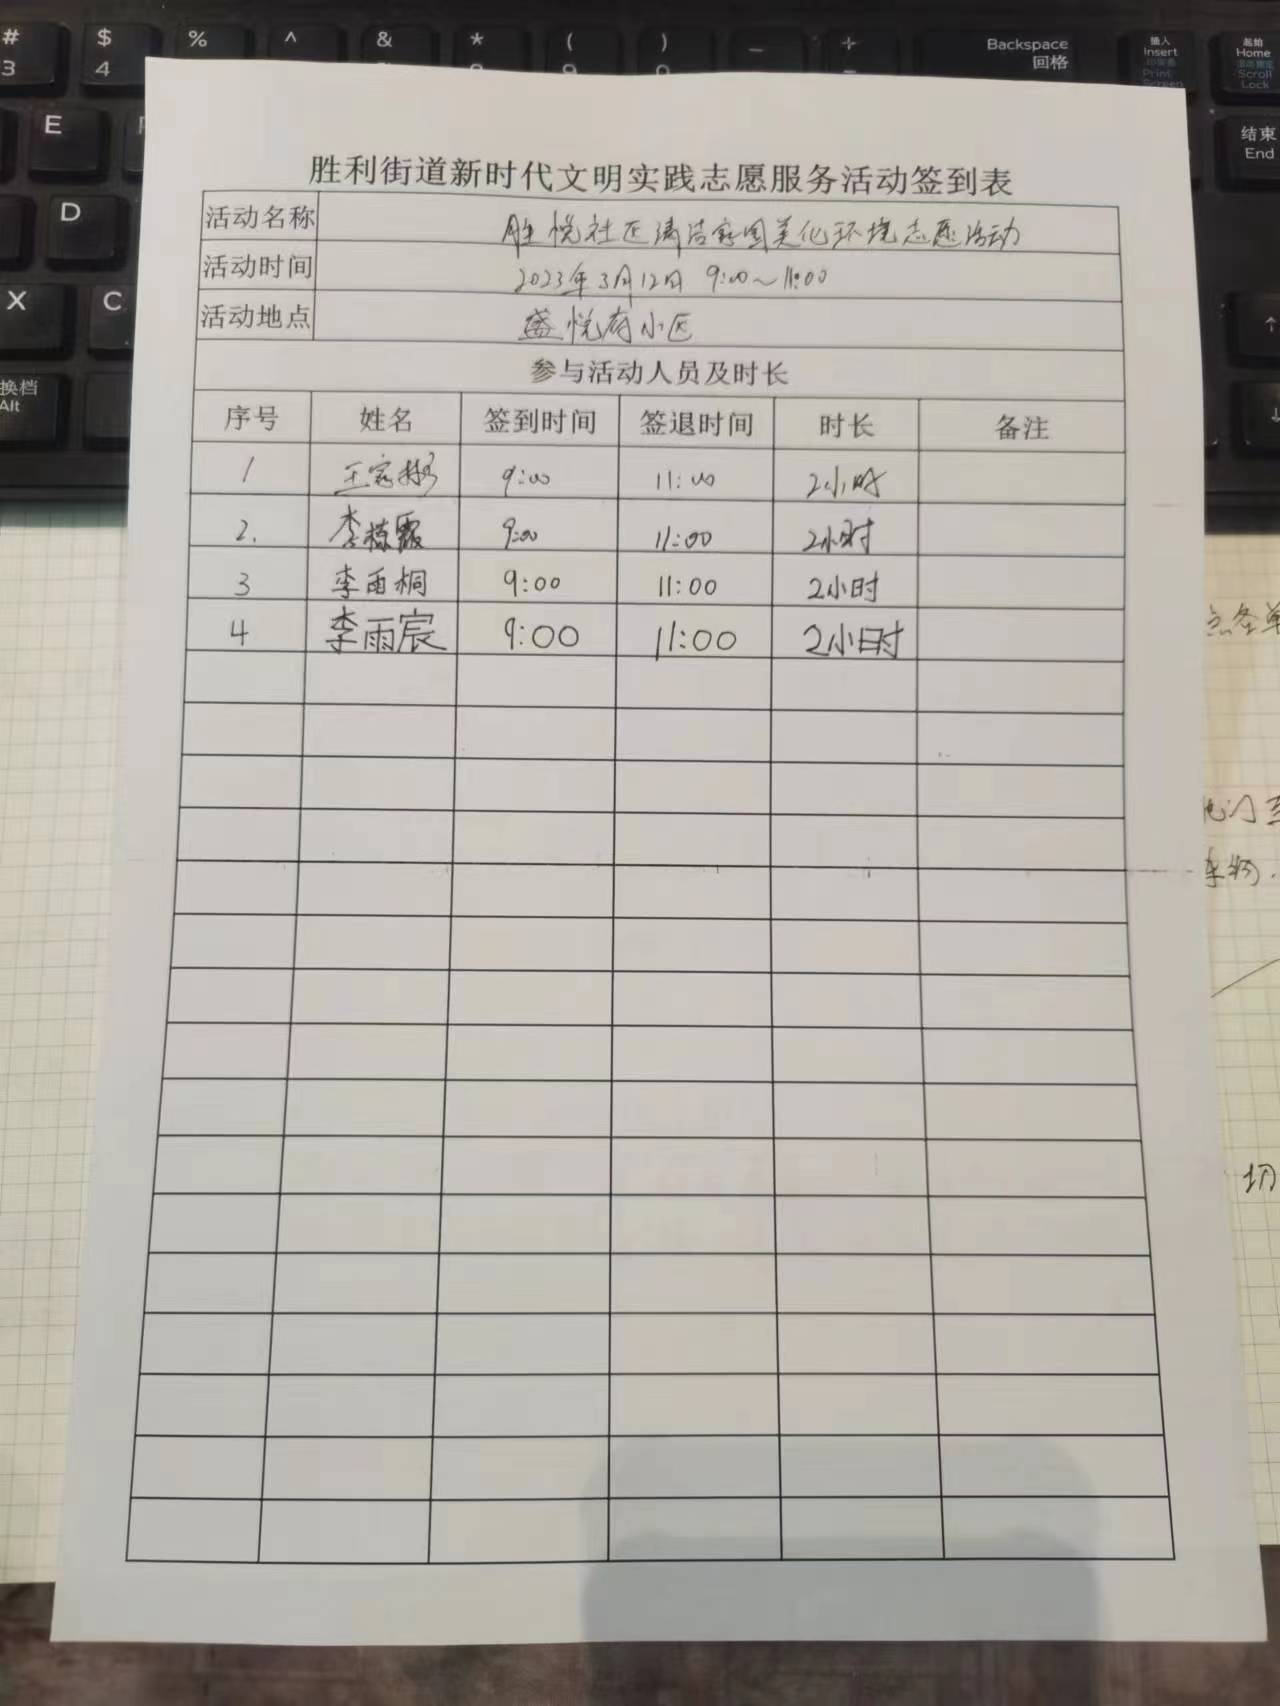 # $ % ^ & * ( ) — +
3 4
Backspace
回格
插入
Insert
Print
Screen
起始
Home
Scroll
Lock
E
结束
End
D
X C
换档
Alt
胜利街道新时代文明实践志愿服务活动签到表
活动名称 胜悦社区清洁家园美化环境志愿活动
活动时间 2023年3月12日 9:00~11:00
活动地点 盛悦府小区
参与活动人员及时长
序号 姓名 签到时间 签退时间 时长 备注
1 王家彬 9:00 11:00 2小时
2. 李栋霞 9:00 11:00 2小时
3 李雨桐 9:00 11:00 2小时
4 李雨宸 9:00 11:00 2小时
切